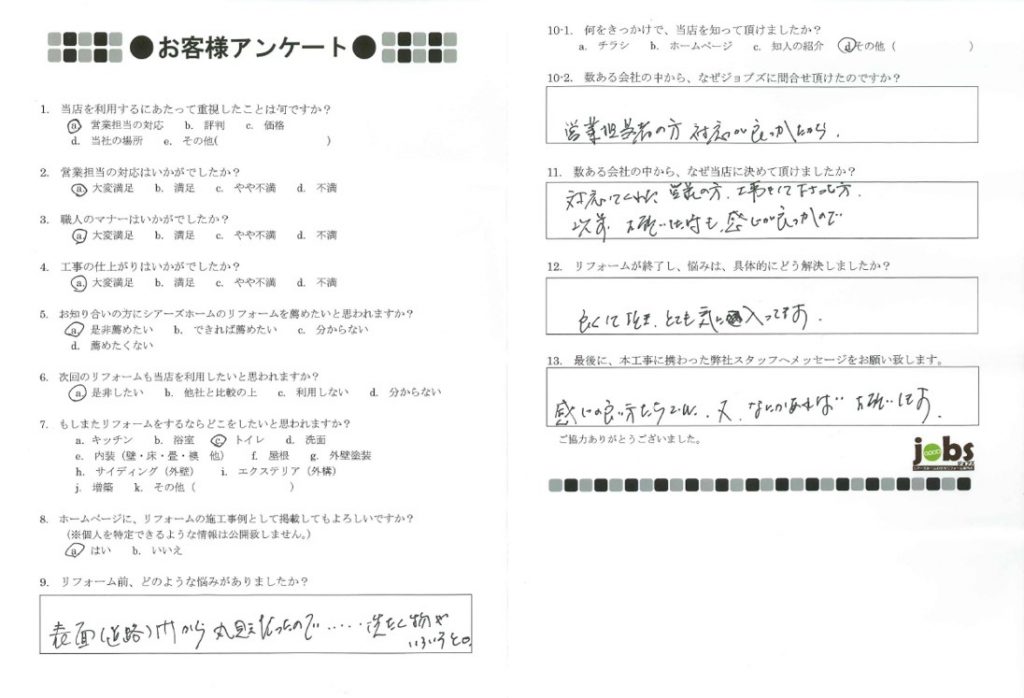 ●お客様アンケート●
1. 当店を利用するにあたって重視したことは何ですか？
a. 営業担当の対応 b. 評判 c. 価格
d. 当社の場所 e. その他( )
2. 営業担当の対応はいかがでしたか？
a. 大変満足 b. 満足 c. やや不満 d. 不満
3. 職人のマナーはいかがでしたか？
a. 大変満足 b. 満足 c. やや不満 d. 不満
4. 工事の仕上がりはいかがでしたか？
a. 大変満足 b. 満足 c. やや不満 d. 不満
5. お知り合いの方にシアーズホームのリフォームを薦めたいと思われますか？
a. 是非薦めたい b. できれば薦めたい c. 分からない
d. 薦めたくない
6. 次回のリフォームも当店を利用したいと思われますか？
a. 是非したい b. 他社と比較の上 c. 利用しない d. 分からない
7. もしまたリフォームをするならどこをしたいと思われますか？
a. キッチン b. 浴室 c. トイレ d. 洗面
e. 内装（壁・床・畳・襖 他） f. 屋根 g. 外壁塗装
h. サイディング（外壁） i. エクステリア（外構）
j. 増築 k. その他（ ）
8. ホームページに、リフォームの施工事例として掲載してもよろしいですか？
（※個人を特定できるような情報は公開致しません。）
a. はい b. いいえ
9. リフォーム前、どのような悩みがありましたか？
表面(道路)から 丸見えだったので‥‥‥洗たく物や
いろいろと。
10-1. 何をきっかけで、当店を知って頂けましたか？
a. チラシ b. ホームページ c. 知人の紹介 d. その他（ ）
10-2. 数ある会社の中から、なぜジョブズに問合せ頂けたのですか？
営業担当者の方 対応が良かったから.
11. 数ある会社の中から、なぜ当店に決めて頂けましたか？
対応してくれた 営業の方.工事をして下さった方.
以前 お願いした時も、感じが良かったので
12. リフォームが終了し、悩みは、具体的にどう解決しましたか？
良くて とても気に入ってます.
13. 最後に、本工事に携わった弊社スタッフへメッセージをお願い致します。
感じの良い方たちでした.. 又.なにかあれば お願いします.
ご協力ありがとうございました。
jobs
GOOD